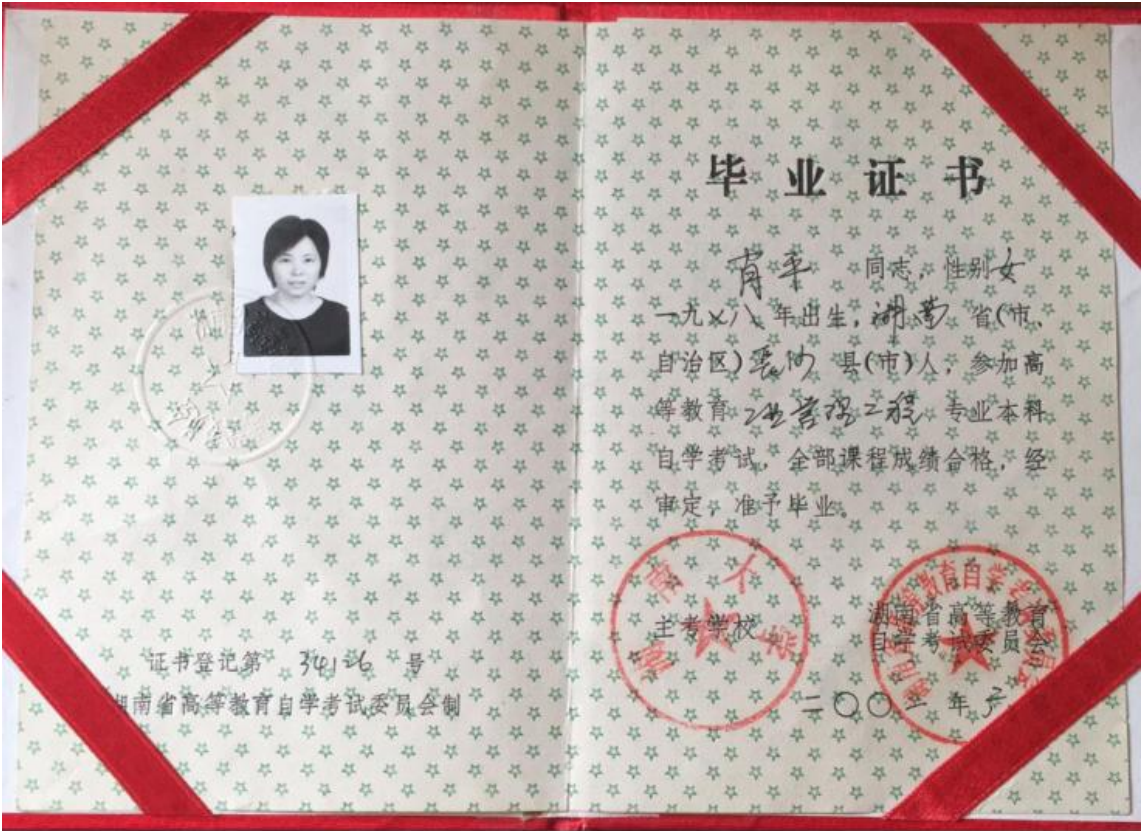 证书登记第 34126 号
湖南省高等教育自学考试委员会制
毕业证书
肖平 同志，性别女
一九七八年出生，湖南 省(市、
自治区)长沙 县(市)人，参加高
等教育 工业管理工程 专业本科
自学考试，全部课程成绩合格，经
审定，准予毕业。
湖南大学
主考学校
湖南省高等教育
自学考试委员会
二〇〇 年